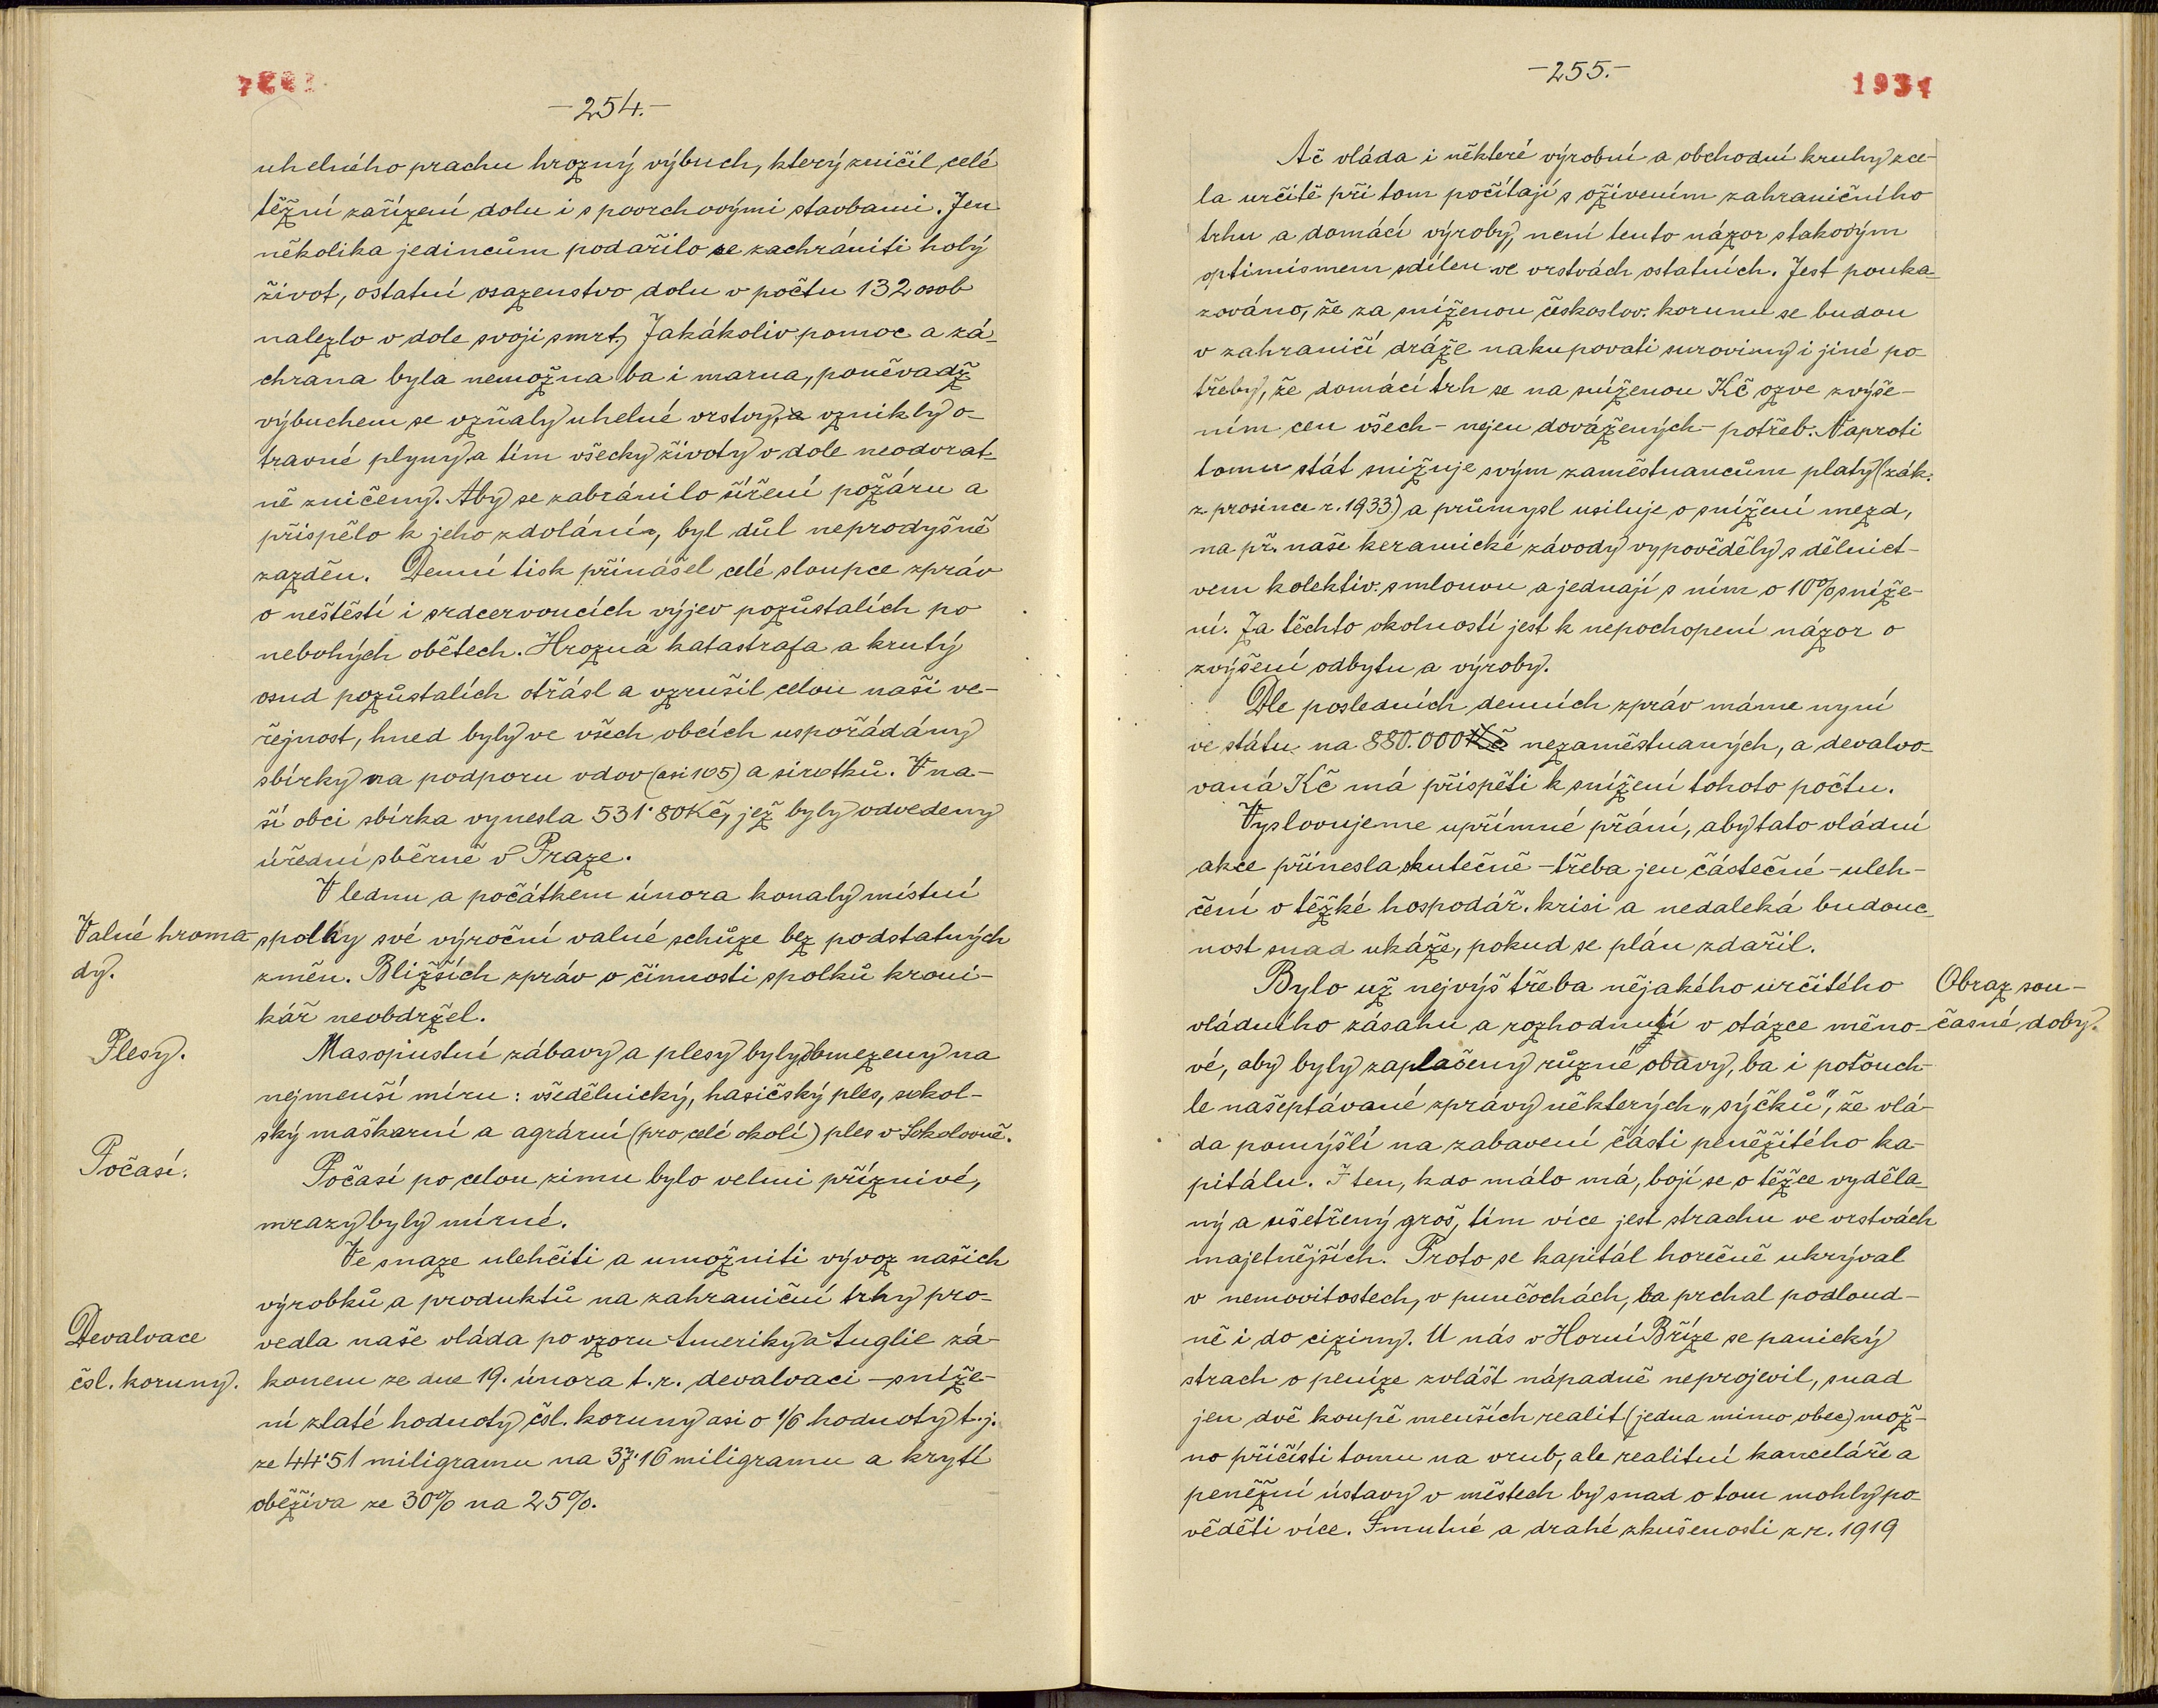 -254.-
uhelného prachu hrozný výbuch, který zničil celé
těžní zařízení dolu i s povrchovými stavbami. Jen
několika jedincům podařilo se zachrániti holý
život, ostatní osazenstvo dolu v počtu 132 osob
nalezlo v dole svoji smrt. Jakákoliv pomoc a zá-
chrana byla nemožna ba i marna, poněvadž
výbuchem se vzňaly uhelné vrstvy, a vznikly o-
travné plyny a tím všecky životy v dole neodvrat-
ně zničeny. Aby se zabránilo šíření požáru a
přispělo k jeho zdolání, byl důl neprodyšně
zazděn. Denní tisk přinášel celé sloupce zpráv
o neštěstí i srdcervoucích výjev pozůstalích po
nebohých obětech. Hrozná katastrafa a krutý
osud pozůstalích otřásl a vzrušil celou naší ve-
řejnost, hned byly ve všech obcích uspořádány
sbírky na podporu vdov (asi 105) a sirotků. V na-
ší obci sbírka vynesla 531·80 Kč, jež byly odvedeny
úřední sběrně v Praze.
V lednu a počátkem února konaly místní
Valné hroma-
dy.
spolky své výroční valné schůze bez podstatných
změn. Bližších zpráv o činnosti spolků kroni-
kář neobdržel.
Plesy.
Masopustní zábavy a plesy byly obmezeny na
nejmenší míru: všedělnický, hasičský ples, sokol-
ský maškarní a agrární (pro celé okolí) ples v Sokolovně.
Počasí.
Počasí po celou zimu bylo velmi příznivé,
mrazy byly mírné.
Ve snaze ulehčiti a umožniti vývoz našich
výrobků a produktů na zahraniční trhy pro-
Devalvace
čsl. koruny.
vedla naše vláda po vzoru Ameriky a Anglie zá-
konem ze dne 19. února t. r. devalvaci - sníže-
ní zlaté hodnoty čsl. koruny asi o 1/6 hodnoty t. j.
ze 44·51 miligramu na 37·16 miligramu a krytí
oběživa ze 30% na 25%.
-255.-
1934
Ač vláda i některé výrobní a obchodní kruhy zce-
la určitě při tom počítají s oživením zahraničního
trhu a domácí výroby, není tento názor s takovým
optimismem sdílen ve vrstvách ostatních. Jest pouka-
zováno, že za sníženou českoslov. korunu se budou
v zahraničí dráže nakupovati suroviny i jiné po-
třeby, že domácí trh se na sníženou Kč ozve zvýše-
ním cen všech - nejen dovážených - potřeb. Naproti
tomu stát snižuje svým zaměstnancům platy (zák.
z prosince r. 1933) a průmysl usiluje o snížení mezd,
na př. naše keramické závody vypověděly s dělnict-
vem kolektiv. smlouvu a jednají s ním o 10% sníže-
ní. Za těchto okolností jest k nepochopení názor o
zvýšení odbytu a výroby.
Dle posledních denních zpráv máme nyní
ve státu na 880.000 Kč nezaměstnaných, a devalvo-
vaná Kč má přispěti k snížení tohoto počtu.
Vyslovujeme upřímné přání, aby tato vládní
akce přinesla skutečně - třeba jen částečné - uleh-
čení v těžké hospodář. krisi a nedaleká budouc-
nost snad ukáže, pokud se plán zdařil.
Obraz sou-
časné doby.
Bylo už nejvýš třeba nějakého určitého
vládního zásahu a rozhodnutí v otázce měno-
vé, aby byly zaplašeny různé obavy, ba i poťouch-
le našeptávané zprávy některých „sýčků", že vlá-
da pomýšlí na zabavení části peněžitého ka-
pitálu. I ten, kdo málo má, bojí se o těžce vyděla-
ný a ušetřený groš, tím více jest strachu ve vrstvách
majetnějších. Proto se kapitál horečně ukrýval
v nemovitostech, v punčochách, ba prchal podloud-
ně i do ciziny. U nás v Horní Bříze se panický
strach o peníze zvlášť nápadně neprojevil, snad
jen dvě koupě menších realit (jedna mimo obec) mož-
no přičísti tomu na vrub, ale realitní kanceláře a
peněžní ústavy v městech by snad o tom mohly po-
věděti více. Smutné a drahé zkušenosti z r. 1919